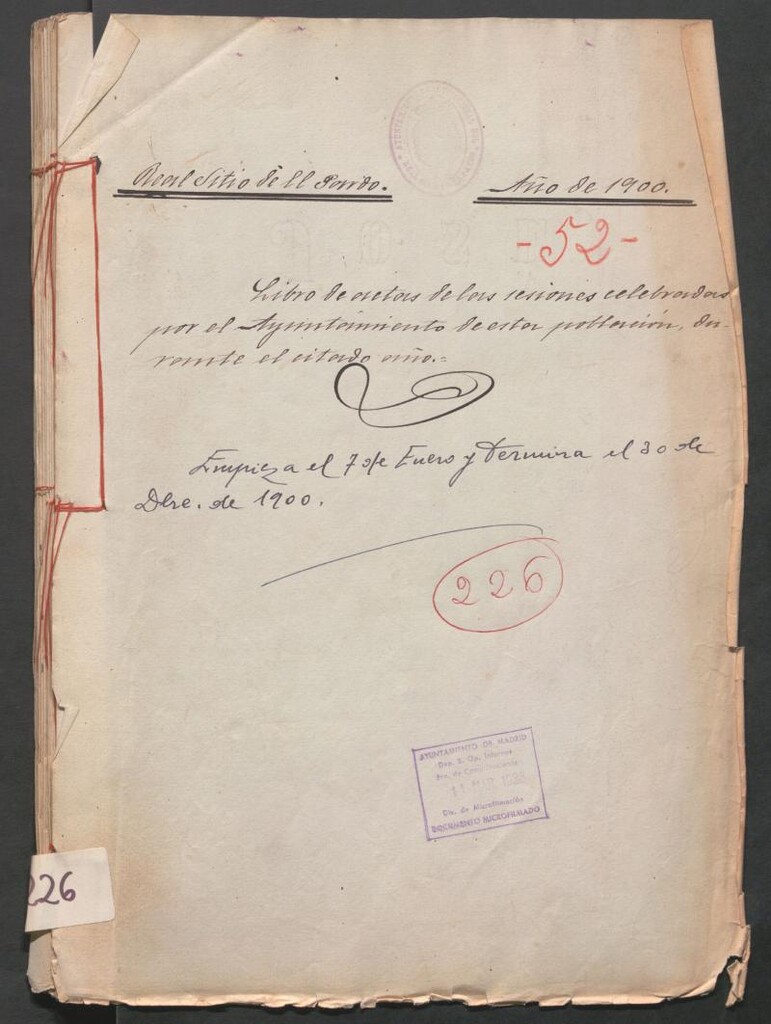 Real Sitio de El Pardo.
Año de 1900.
-52-
Libro de actas de las sesiones celebradas
por el Ayuntamiento de esta población, du-
rante el citado año.=
Empieza el 7 de Enero y termina el 30 de
Dbre. de 1900.
226
AYUNTAMIENTO DE MADRID
Dep. 2. Op. Internos
11 MAR 1988
Div. de Microfilmación
DOCUMENTO MICROFILMADO
226